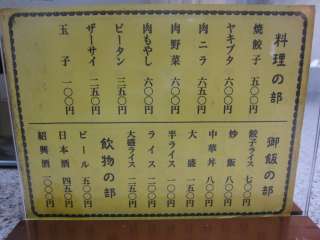 料理の部
焼餃子 五〇〇円
ヤキブタ 六〇〇円
肉ニラ 六五〇円
肉野菜 六〇〇円
肉もやし 六〇〇円
ピータン 三五〇円
ザーサイ 二五〇円
玉子 一〇〇円
御飯の部
餃子ライス 七〇〇円
炒飯 八〇〇円
中華丼 八〇〇円
大盛 一五〇円
半ライス 一五〇円
ライス 二〇〇円
大盛ライス 二五〇円
飲物の部
ビール 五〇〇円
日本酒 四五〇円
紹興酒